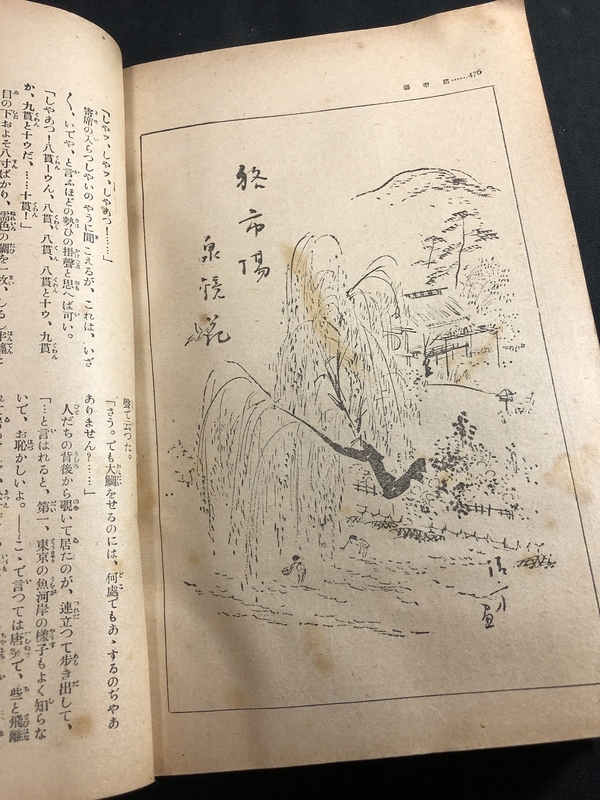 476……場市貉
貉市場
泉鏡花
「しやッ、しやッ、しやあつ！……」
寄席の入ちつしやいのやうに聞こえるが、これは、いざ
く、いでや、と言ふほどの勢ひの掛聲と思へば可い。
「しやあつ！八貫ーウん、八貫、八貫、八貫と十ウ、九貫
か、九貫と十ウだ、……十貫！」
目の下およそ八寸ばかり、濡色の鯛を一枚、しるし半纏
聲で云つた。
「さう。でも大鯛をせるのには、何處でもあゝするのぢやあ
ありません？……」
人だちの背後から覗いて居たのが、連立つて歩き出して、
「…と言はれると、第一、東京の魚河岸の樣子もよく知らな
いで、お恥かしいよ。――こゝで言つては唐突で、些と飛離